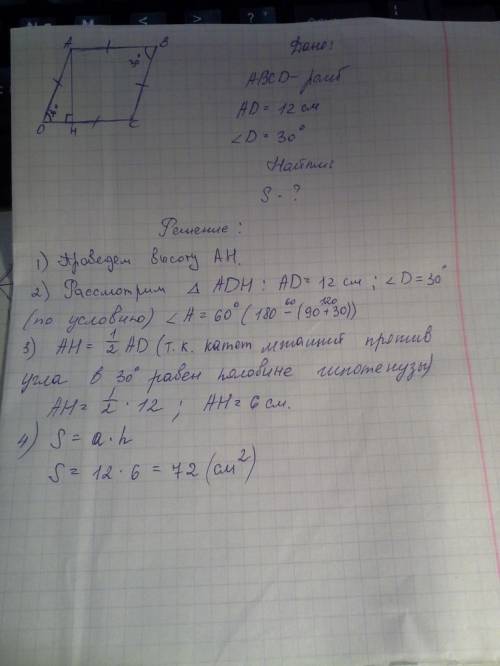 A B
30°
30°
D H C
Дано:
ABCD - ромб
AD = 12 см
∠D = 30°
Найти:
S - ?
Решение:
1) Проведем высоту AH.
2) Рассмотрим △ ADH: AD = 12 см; ∠D = 30°
(по условию) ∠A = 60° (180 - (90 + 30))
60 120
3) AH = 1/2 AD (т.к. катет лежащий против
угла в 30° равен половине гипотенузы)
AH = 1/2 · 12; AH = 6 см.
4) S = a · h
S = 12 · 6 = 72 (см²)